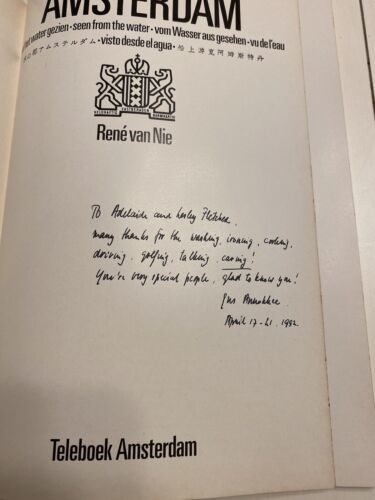 AMSTERDAM
water gezien • seen from the water • vom Wasser aus gesehen • vu de l'eau
アムステルダム • visto desde el agua • 船上游覽阿姆斯特丹
HELDHAFTIG VASTBERADEN BARMHARTIG
René van Nie
To Adelaide and Lesley Fletcher,
many thanks for the washing, ironing, cooking,
driving, golfing, talking caring!
You're very special people, glad to know you!
April 17-21. 1992
Teleboek Amsterdam